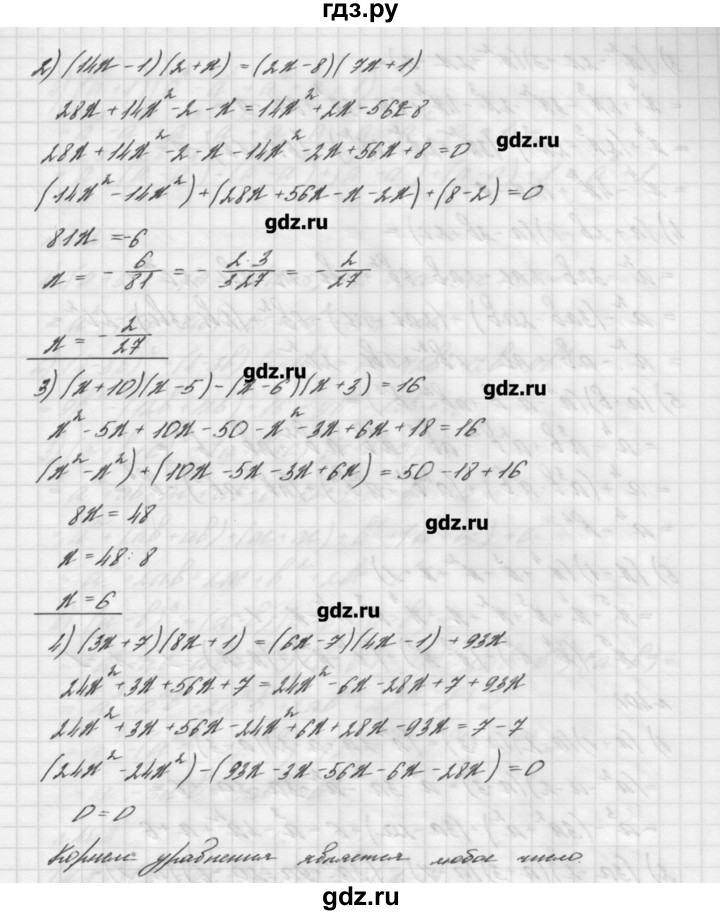 гдз.ру
2) (14x-1)(2+x)=(2x-8)(7x+1)
28x+14x²-2-x=14x²+2x-56x-8
gdz.ru
28x+14x²-2-x-14x²-2x+56x+8=0
(14x²-14x²)+(28x+56x-x-2x)+(8-2)=0
gdz.ru
81x=-6
x = - 6/81 = - 2·3/3·27 = - 2/27
x = - 2/27
gdz.ru
3) (x+10)(x-5)-(x-6)(x+3)=16
gdz.ru
x²-5x+10x-50-x²-3x+6x+18=16
(x²-x²)+(10x-5x-3x+6x)=50-18+16
8x=48
gdz.ru
x=48:8
x=6
gdz.ru
4) (3x+7)(8x+1)=(6x-7)(4x-1)+93x
24x²+3x+56x+7=24x²-6x-28x+7+93x
24x²+3x+56x-24x²+6x+28x-93x=7-7
(24x²-24x²)-(93x-3x-56x-6x-28x)=0
0=0
Корнем уравнения является любое число.
gdz.ru